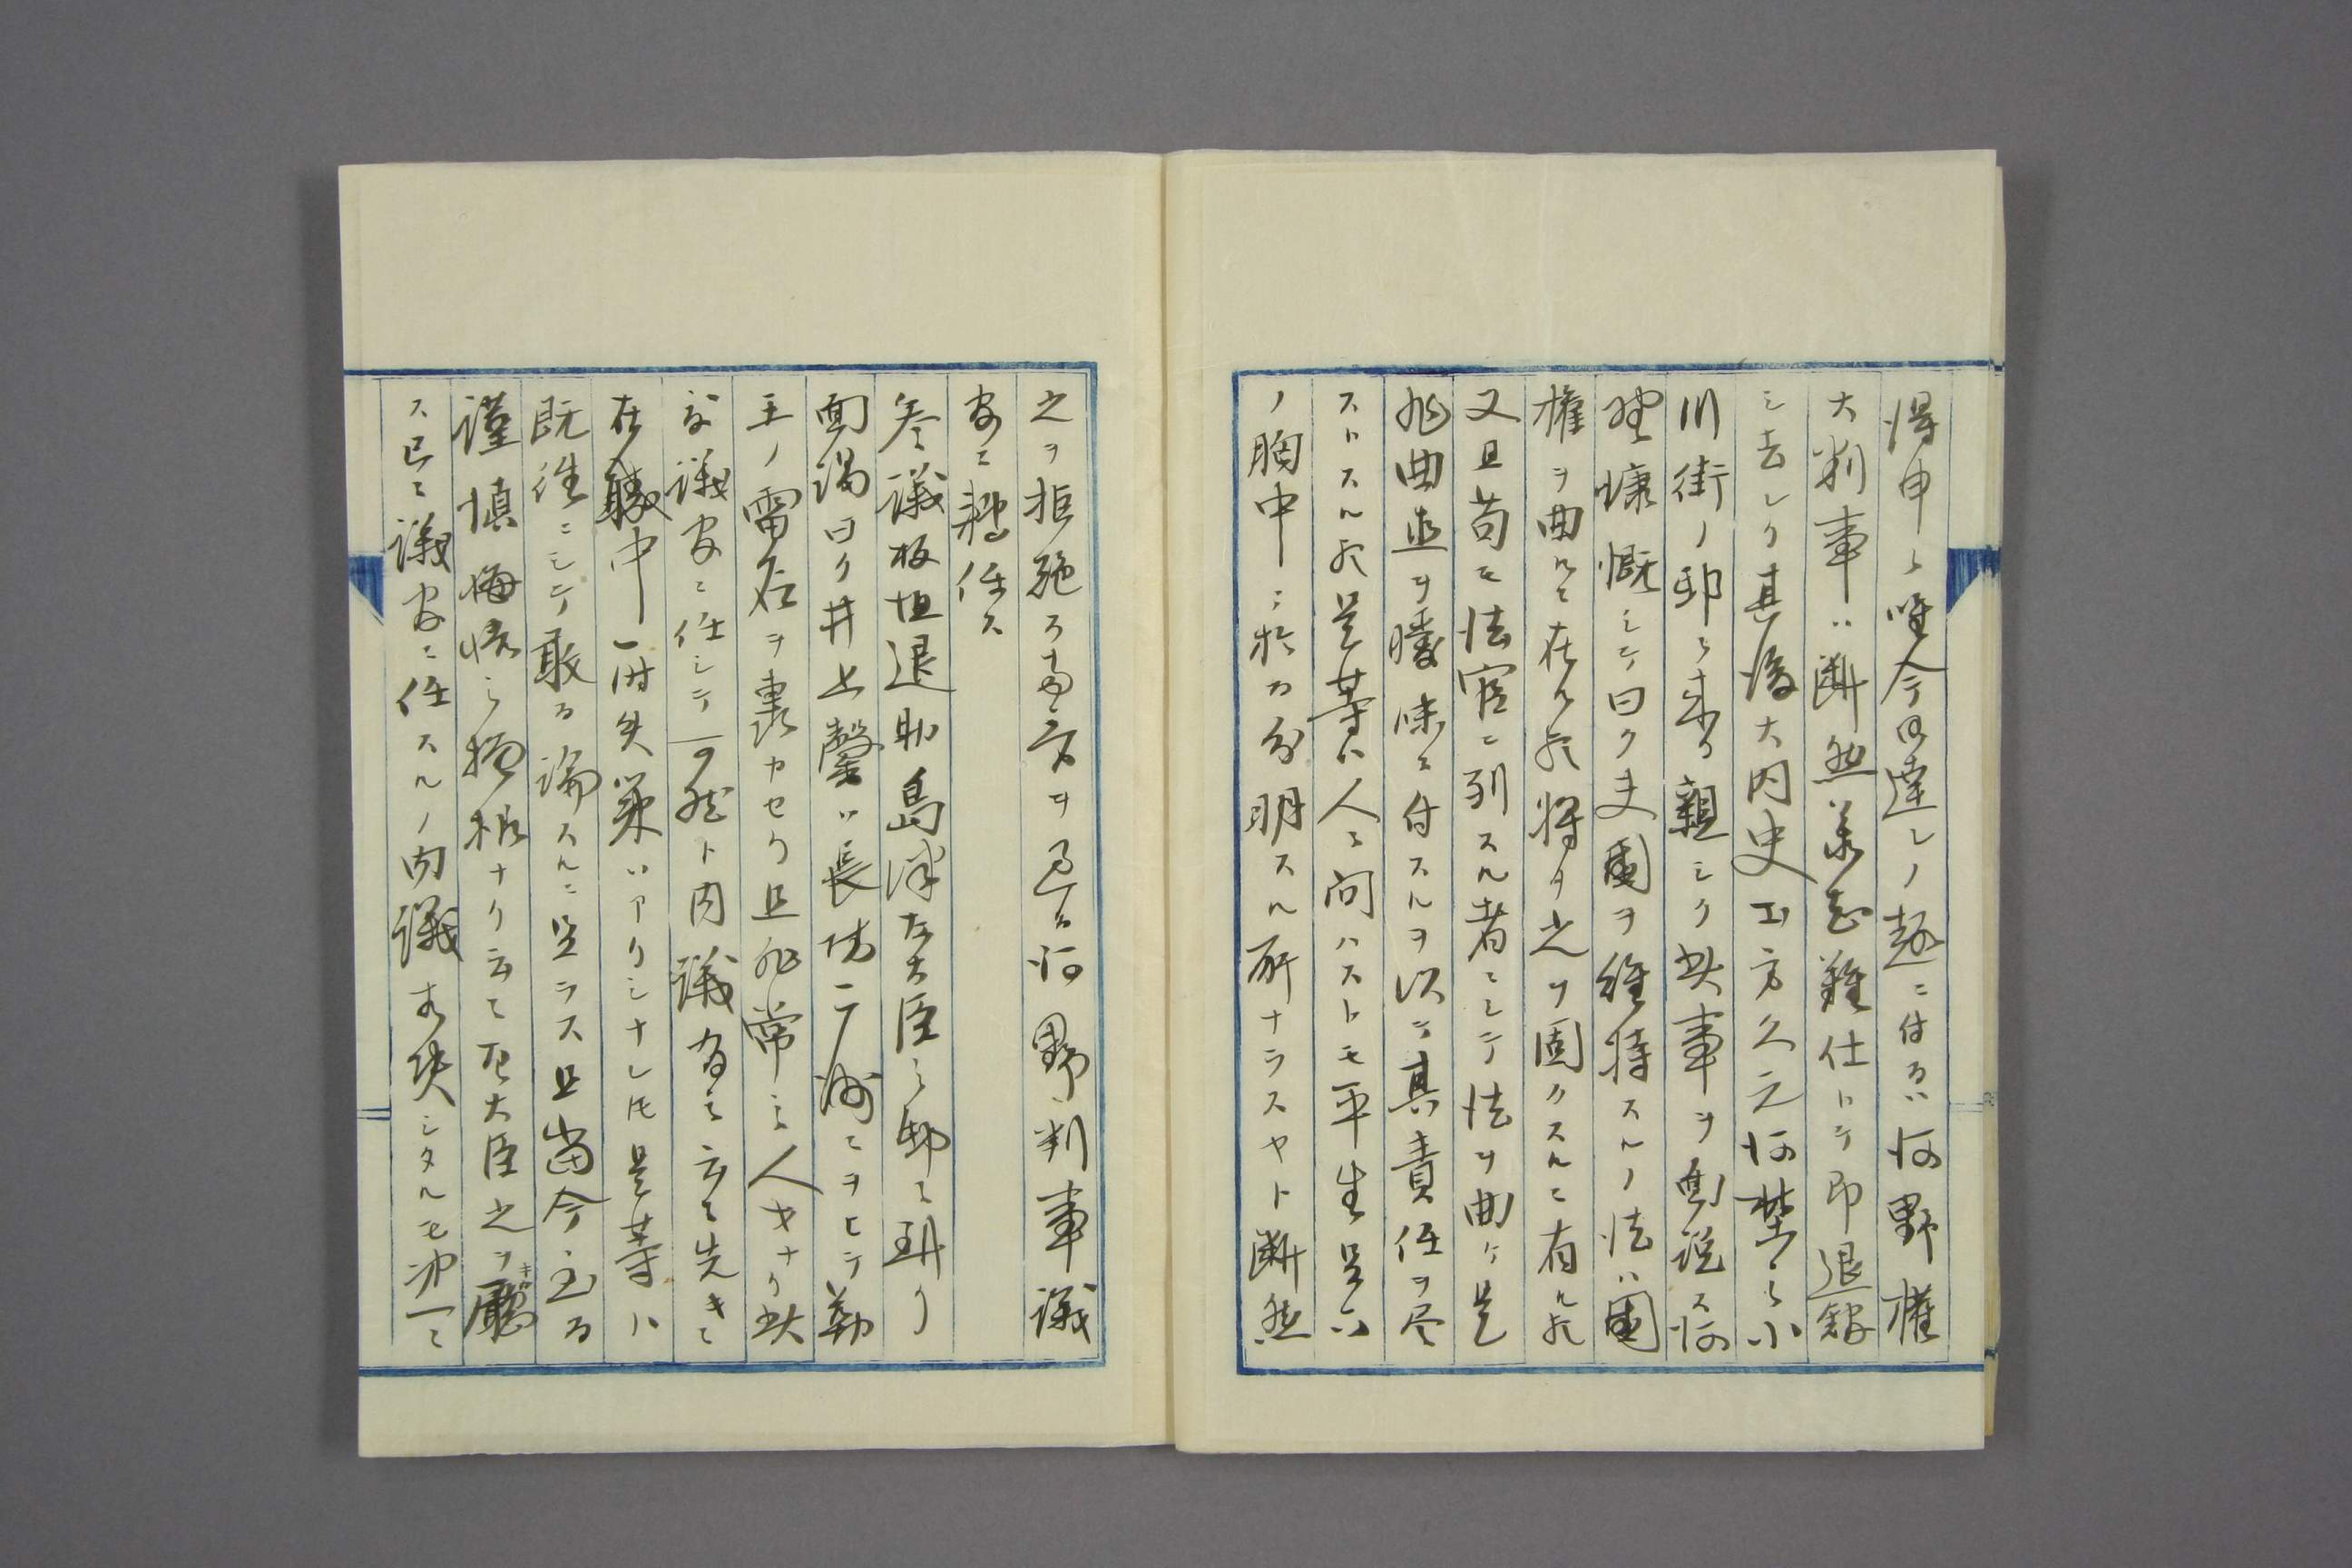 得申シ唯今御達シノ趣ニ付テハ河野権
大判事ハ断然承志難仕トテ即退館
シ去レリ其後大内史土方久元河野ヲ小
川街ノ邸ニ来リ親シク此事ヲ勧説ス河
野慷慨シテ曰ク夫国ヲ維持スルノ法ハ国
権ヲ曲ルニ在ル乎将タ之ヲ固クスルニ有ル乎
又且苟モ法官ニ列スル者ニシテ法ヲ曲ケ是
非曲直ヲ曖昧ニ付スルヲ以テ其責任ヲ尽
ストスル乎是等ハ人ニ問ハストモ平生足下
ノ胸中ニ於テ分明スル所ナラスヤト断然
之ヲ拒絶ス 河野判事議
官ニ転任ス
参議板垣退助島津左大臣ノ邸ニ到リ
面謁曰ク井上馨ハ長防二洲ニヲヒテ勤
王ノ雷名ヲ轟カセリ且非常ノ人才ナリ此
度議官ニ任シテ可然ト内議有之云々先キニ
在職中一時失策ハアリシナレ𪜈是等ハ
既往ニシテ敢テ論スルニ足ラス且当今ニ至テ
謹慎悔悟シ 云々左大臣之ヲ聴
ス已ニ議官ニ任スルノ内議 決シタルモ次一ニ